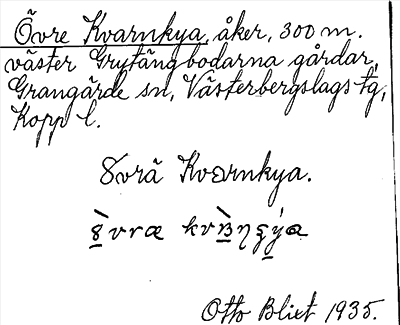 Övre Kvarnkya, åker, 300 m.
väster Grytängbodarna gårdar,
Grangärde sn, Västerbergslags tg,
Kopp l.
Kvarnkya.
Otto Blixt 1935.